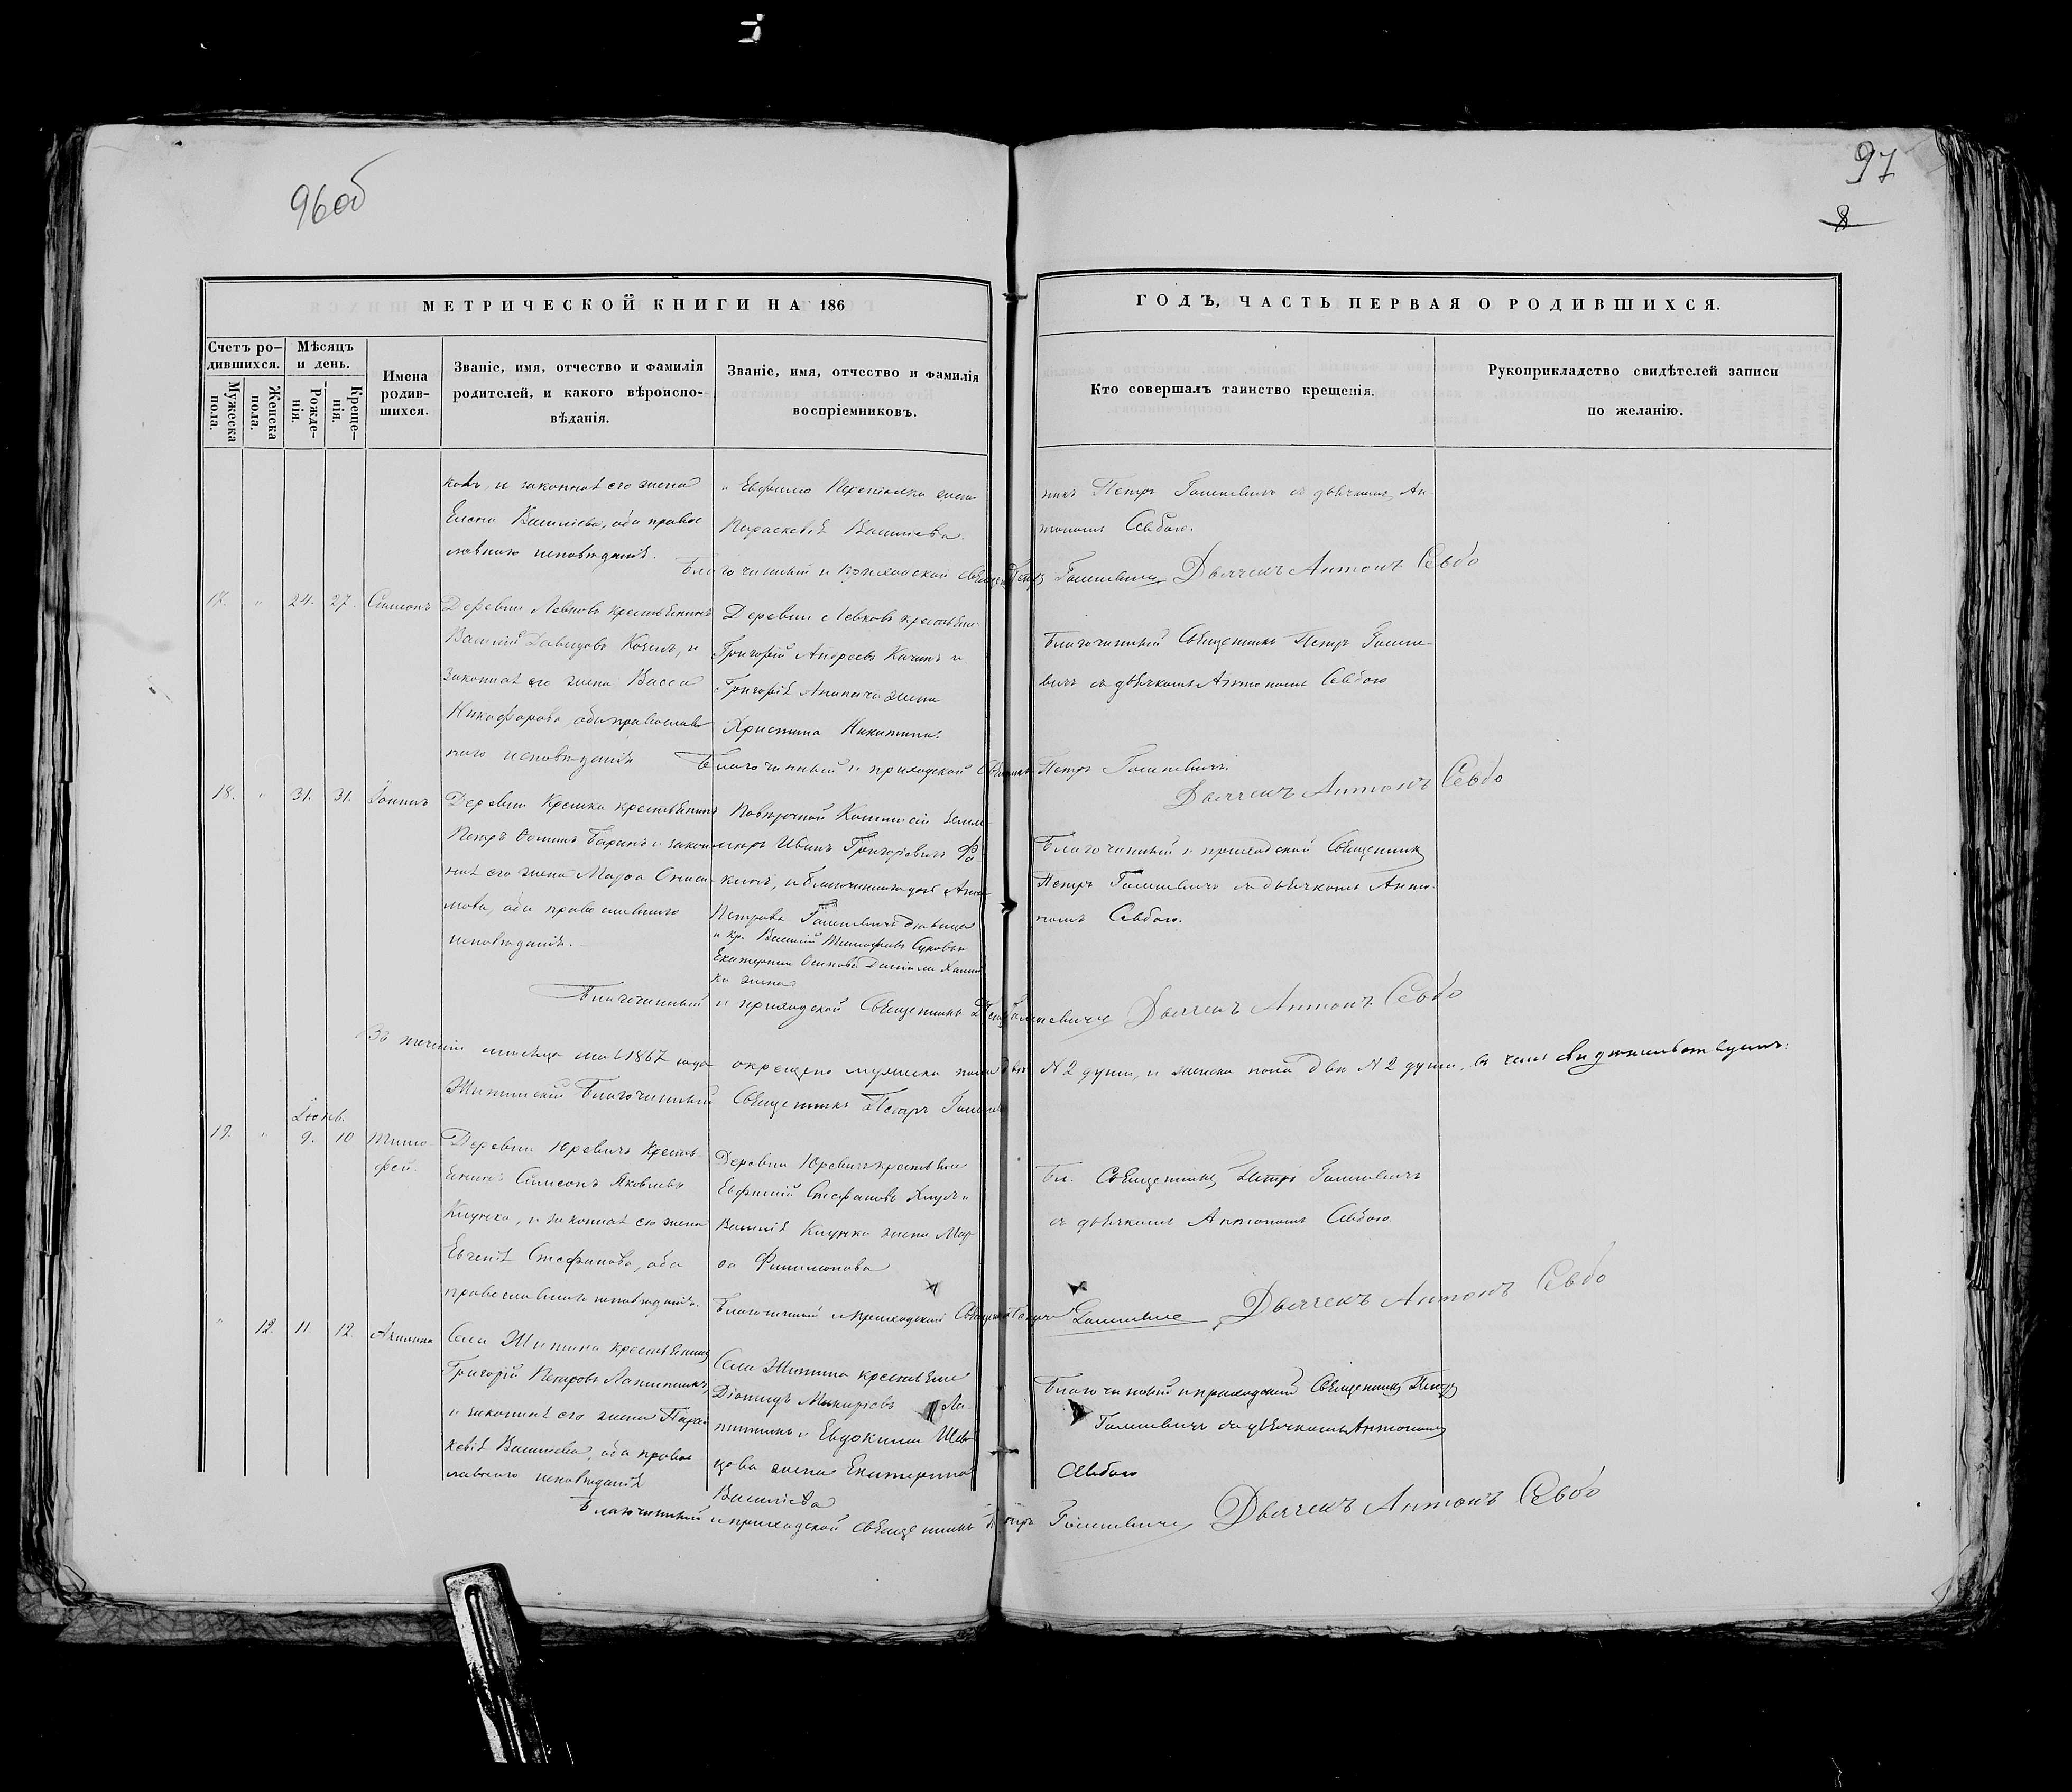 96об
97
8
МЕТРИЧЕСКОЙ КНИГИ НА 186
ГОДЪ, ЧАСТЬ ПЕРВАЯ О РОДИВШИХСЯ.
Счетъ ро-
дившихся.
Мужеска
пола.
Женска
пола.
Мѣсяцъ
и день.
Рожде-
нія.
Креще-
нія.
Имена
родив-
шихся.
Званіе, имя, отчество и фамилія
родителей, и какого вѣроиспо-
вѣданія.
Званіе, имя, отчество и фамилія
воспріемниковъ.
Кто совершалъ таинство крещенія.
Рукоприкладство свидѣтелей записи
по желанію.
и законная его жена
Елена Василіева, оба правос
лавнаго исповѣданія.
жена
Параскевія Василіева.
никъ Петръ съ дьячкомъ Ан-
тономъ Севбою.
Благочинный и приходской Петръ Дьячекъ Антонъ Севбо
17. " 24. 27. Симеонъ
Деревни Левковъ крестьянинъ
Василій Давидовъ и
законная его жена Васса
Никифорова, оба православ
наго исповѣданія
Деревни Левковъ крестьяне
Григорій Андреевъ и
Григорія жена
Христина Никитина.
Благочинный Священникъ Петръ
вичъ съ дьячкомъ Антономъ Севбою
Благочинный и приходской Священникъ Петръ
Дьячекъ Антонъ Севбо
18. " 31. 31. Іоаннъ
Деревни крестьянинъ
Петръ и закон
ная его жена МарѳаОниси
мова, оба православнаго
исповѣданія.
Повѣрочной Коммисіи земле
мѣръ Иванъ Григоріевичъ
и благочиннаго дочь Анна
Петрова дѣвица
и кр. Василій Тимофеевъ
Екатерина Осипова Даніила
жена
Благочинный и приходской Священникъ
Петръ съ дьячкомъ Анто-
номъ Севбою.
Благочинный и приходской Священникъ Петръ Дьячекъ Антонъ Севбо
Въ теченіи мѣсяца мая 1867 года окрещено мужеска пола двѣ N 2 души, и женска пола двѣ N 2 души, въ чемъ свидѣтельствуемъ:
Житинскій Благочинный Священникъ Петръ
Іюнь.
19. " 9. 10 Тимо-
фей.
Деревни Юревичъ кресть-
янинъ Симеонъ Яковлевъ
и законная его жена
Евгенія Стефанова, оба
православнаго исповѣданія.
Деревни Юревичъ крестьяне
Евфимій Стефановъ
Василія жена Мар
ѳа Филимонова
Бл. Священникъ Петръ
съ дьячкомъ Антономъ Севбою.
Благочинный и приходской Священникъ Петръ Дьячекъ Антонъ Севбо
" 12. 11. 12. Акилина
Села Житина крестьянинъ
Григорій Петровъ
и законная его жена Парас
кевія Василіева, оба правос
лавнаго исповѣданія
Села Житина крестьяне
и Евдокима Шев
цова жена Екатерина
Василіева
Благочинный и приходской Священникъ Петръ
съ дьячкомъ Антономъ
Севбою
Благочинный и приходской Священникъ Петръ Дьячекъ Антонъ Севбо